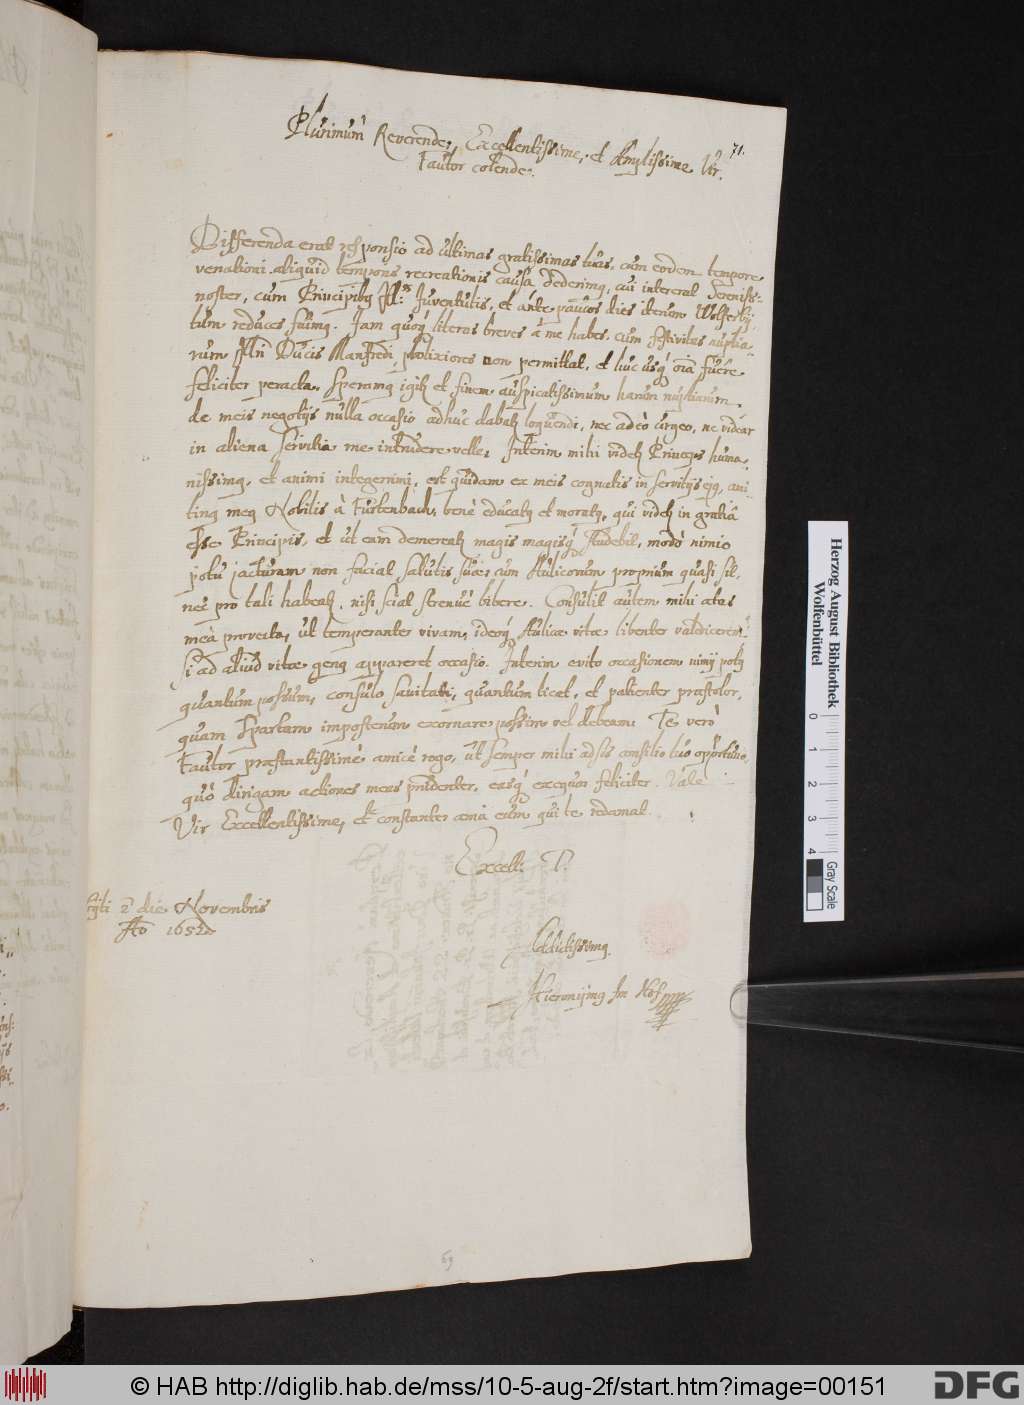 71.
Plurimum Reverende, Excellentissime, et Amplissime Vir.
Fautor colende.
Differenda erat responsio ad ultimas gratissimas tuas, cum eodem tempore
venationi aliquid temporis recreationis causâ dederimq, cui intererat Sereniss:
noster, cum Principibq Juventutis, et ante paucos dies iterum Wolferby,,
tum reduces fuimq. Jam quoq literas breves à me habes, cum festivitas nuptia,,
rum Ducis Manfredi, prolixiores non permittat, et huc usq oîa fuêre
feliciter peracta, speramq igitr et finem auspicatissimum harum nuptiarum.
de meis negotijs nulla occasio adhuc dabatr loquendi, nec adeò urgeo, ne videar
in aliena servitia me intrudere velle, Interim mihi videtr Princeps huma,,
nissimq, et animi integerrimi, est quidam ex meis cognatis in servitijs ejq, ami,,
tinq meq Nobilis à Furtenbach, benè educatq et moratq, qui videtr in gratiâ
esse Principis, et ut eam demereatr magis magisq studebit, modò nimio
potu jacturam non faciat salutis suae, cum Aulicorum proprium quasi sit,
nec pro tali habeatr, nisi sciat strenuè bibere. Consulit autem mihi aetas
mea provecta, ut temperanter vivam, ideoq Aulicae vitae libenter valedicerem
si ad aliud vitae genq appareret occasio. Interim evito occasionem nimij potq
quantum possum, consulo sanitati, quantum licet, et patienter praestolor,
quam Spartam imposterum exornare possim vel debeam. Te verò
Fautor praestantissimè amicè rogo, ut semper mihi adsis consilio tuo opportuno,
quò dirigam actiones meas prudenter, easq exequar feliciter. Vale
Vir Excellentissime, et constanter ama eum qui te redamat.
Excell: T.
2 die Novembris
Ao 1652
Addictissimq
Hieronijmq Im Hof
69
Herzog August Bibliothek
Wolfenbüttel
0 1 2 3 4
Gray Scale
© HAB http://diglib.hab.de/mss/10-5-aug-2f/start.htm?image=00151
DFG